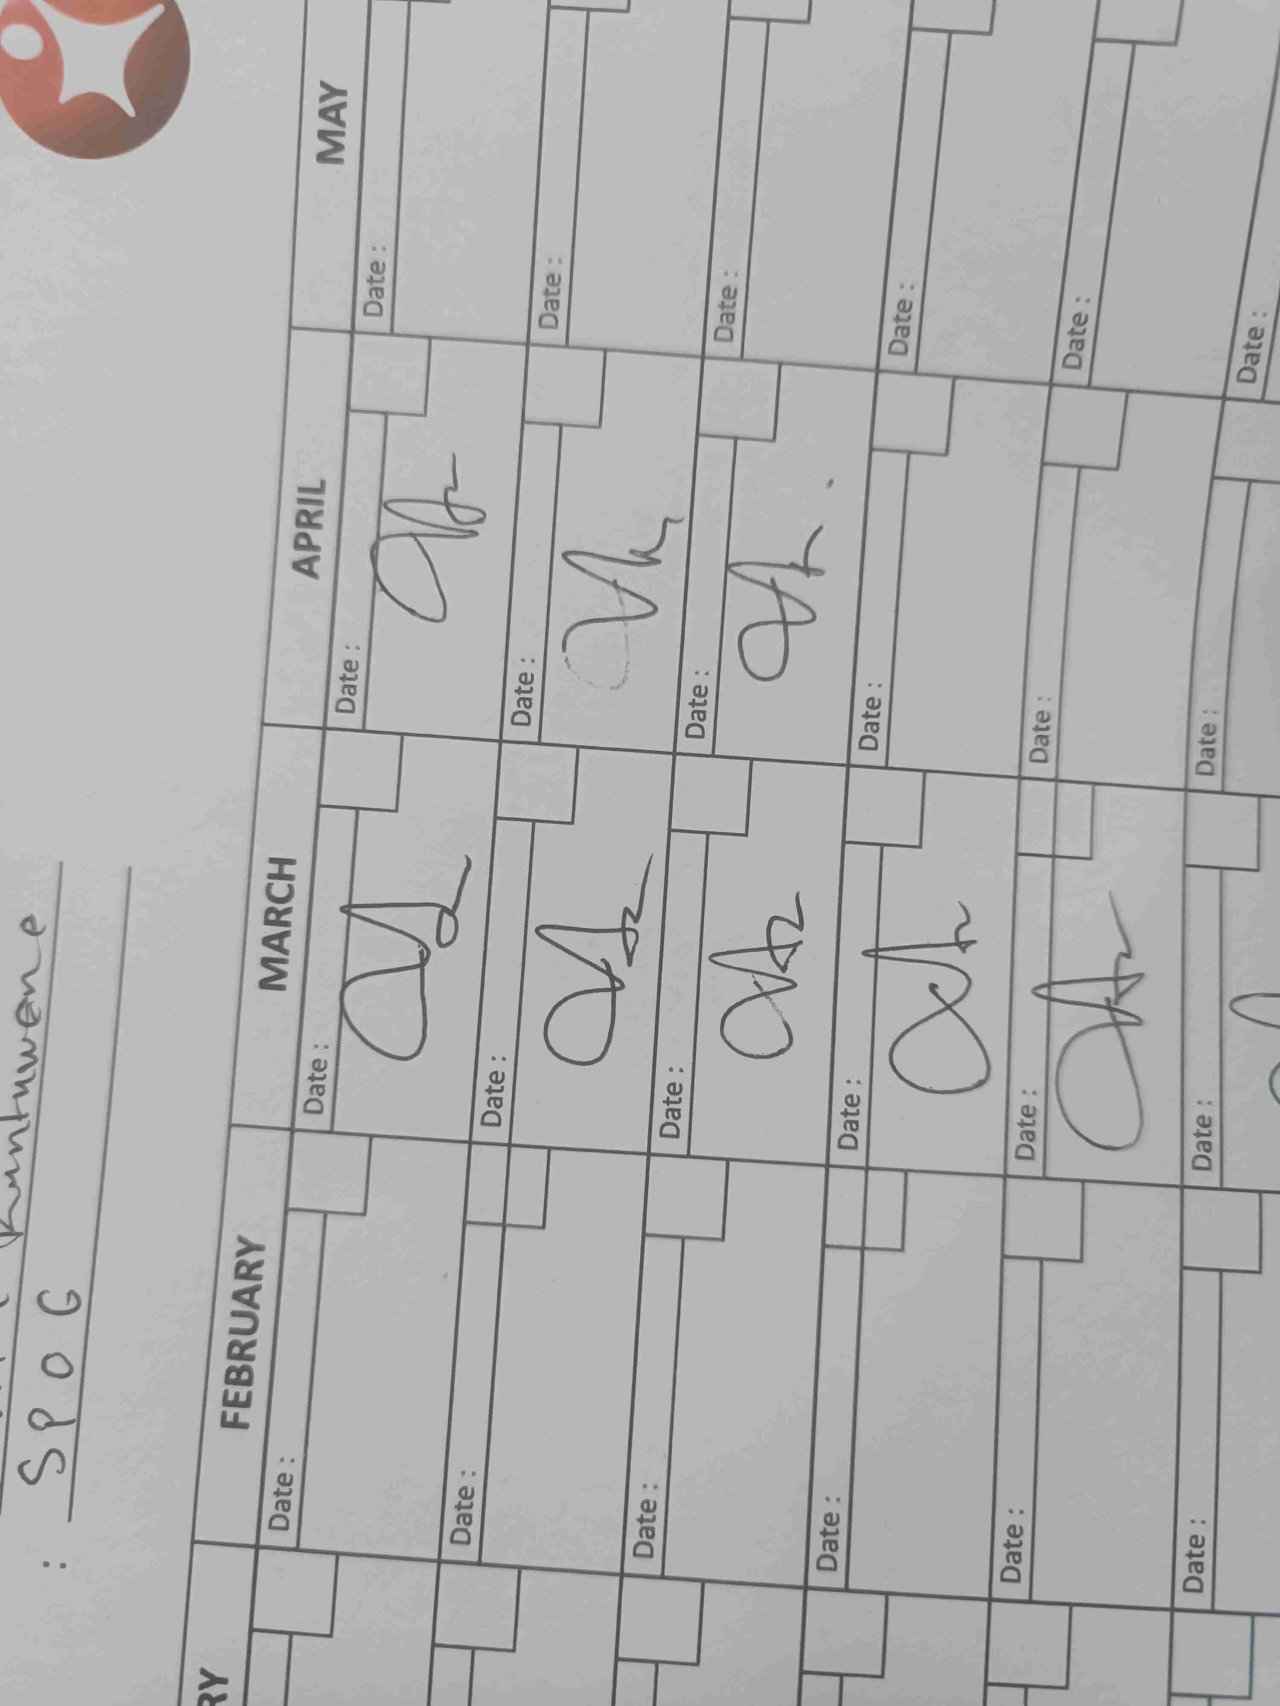 Kuntuwane
: SPOG
RY FEBRUARY MARCH APRIL MAY
Date : Date : Date : Date :
Date : Date : Date : Date :
Date : Date : Date : Date :
Date : Date : Date : Date :
Date : Date : Date : Date :
Date : Date : Date : Date :